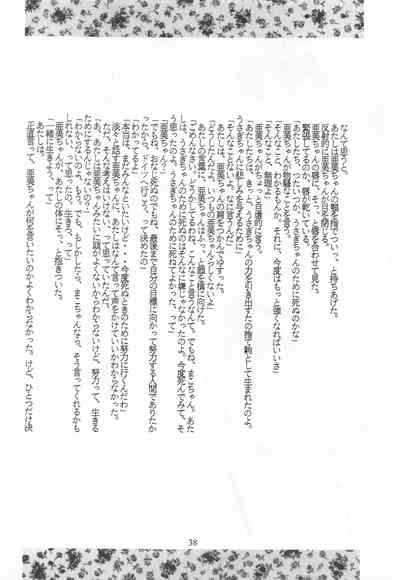 なんて思うと。
あたしは亜美ちゃんの顎を指でついっ、と持ちあげた。
反射的に亜美ちゃんが目を閉じる。
亜美ちゃんの唇に、そっ、と唇を合わせて見た。
緊張してるのか、唇が乾いている。
「あたしたち、また、うさぎちゃんのために死ぬのかな」
亜美ちゃんが物騒なことを言う。
「そんなこと、わかるもんか。それに、今度はもっと強くなればいいさ」
「無理よ」
亜美ちゃんがちょっと自虐的に言う。
「あたしたちはきっと、うさぎちゃんの力を引き出すための捨て駒として生まれたのよ。
うさぎちゃんに悲しみを与えるために」
「そんなことないよ。なに言うんだ」
あたしは、亜美ちゃんの肩をつかんでゆする。
「どうしたんだよ。いつもの亜美ちゃんらしくないよ」
あたしの言葉に、亜美ちゃんはふっ、と顔を横に向けた。
「ごめんなさい。どうかしてるわね、こんなこと言うなんて。でもね、まこちゃん。あた
しは、うさぎちゃんのために死ぬのはそんなに嫌じゃなかったのよ。今度死んでみて、そ
う思ったのよ。うさぎちゃんのために死ねてよかった、って」
「亜美ちゃん……」
「でもね、おなじ死ぬのでもね、最後まで自分の目標に向かって努力する人間でありたか
ったから、ドイツへ行こう、って決めたの」
「わかってるよ」
「本当は、まわんなんといたいけど・・・今度死ぬときのために努力に行くんだわ」
淡々と話す亜美ちゃんに、あたしはなんて言って声をかけていいかわからなかった。
ただ、そんな考えはいけない、って思っていたんだ。
「あ、あたしは亜美ちゃんみたいに頭がよくないからわからないけど、努力って、生きる
ためにするんじゃないの？」
「わからないのよ、もう。でも、もしかしたら、まこちゃんなら、そう言ってくれるかも
しれない、って思ったの。生きろ、って」
亜美ちゃんが、あたしの体にぎゅっ、と抱きついた。
「一緒に生きよう、って」
あたしは。
正直言って、亜美ちゃんが何を言いたいのかよくわからなかった。けど、ひとつだけ決
38